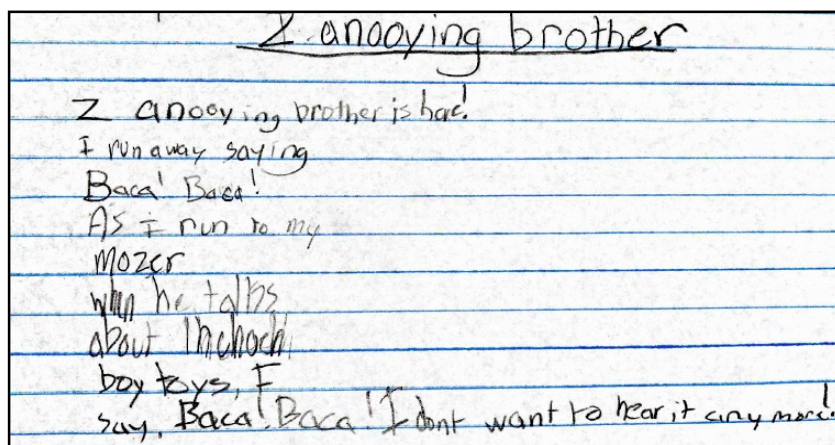 Z anooying brother
Z anooying brother is bac!
I run away saying
Baca! Baca!
As I run to my
mozer
when he talks
about
boy toys, I
say, Baca! Baca! I dont want to hear it any more!